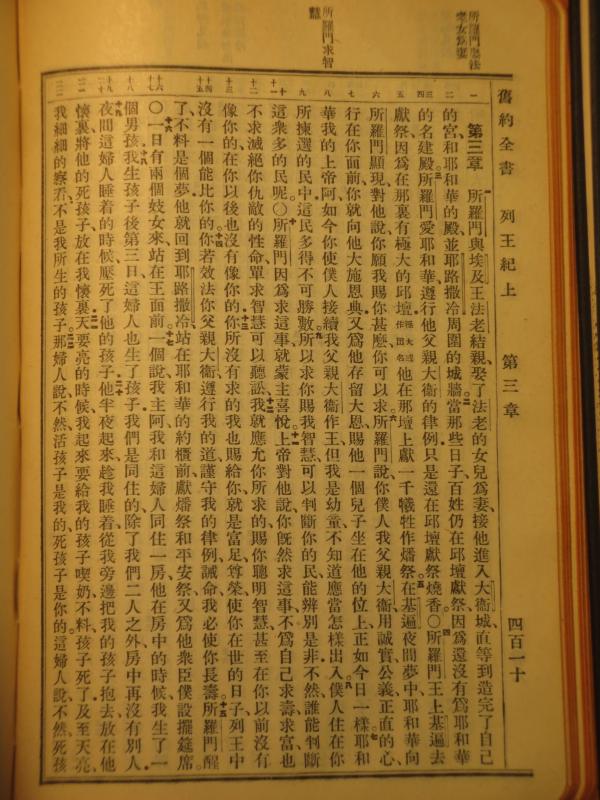 所羅門娶法老女爲妻
所羅門求智慧
舊約全書 列王紀上 第三章 四百一十
第三章 所羅門與埃及王法老結親、娶了法老的女兒爲妻、接他進入大衞城、直等到造完了自己
的宮和耶和華的殿並耶路撒冷周圍的城牆、當那些日子百姓仍在邱壇獻祭因爲還沒有爲耶和華
的名建殿所羅門愛耶和華遵行他父親大衞的律例只是還在邱壇獻祭燒香○所羅門王上基遍去
獻祭因爲在那裏有極大的邱壇極大或作出名他在那壇上獻一千犧牲作燔祭在基遍夜間夢中耶和華向
所羅門顯現對他說你願我賜你甚麽你可以求所羅門說你僕人我父親大衞用誠實公義正直的心、
行在你面前、你就向他大施恩典又爲他存留大恩賜他一個兒子坐在他的位上正如今日一樣耶和
華我的上帝阿如今你使僕人接續我父親大衞作王但我是幼童不知道應當怎樣出入僕人住在你
所揀選的民中這民多得不可勝數所以求你賜我智慧可以判斷你的民能辨別是非不然誰能判斷
這衆多的民呢○所羅門因爲求這事就蒙主喜悅上帝對他說你旣然求這事不爲自己求壽求富也
不求滅絕你仇敵的性命單求智慧可以聽訟我就應允你所求的賜你聰明智慧甚至在你以前沒有
像你的在你以後也沒有像你的你所沒有求的我也賜給你就是富足尊榮使你在世的日子列王中
沒有一個能比你的你若效法你父親大衞遵行我的道謹守我的律例誡命我必使你長壽所羅門醒
了、不料是個夢他就回到耶路撒冷站在耶和華的約櫃前獻燔祭和平安祭又爲他衆臣僕設擺筵席。
○一日有兩個妓女來站在王面前一個說我主阿我和這婦人同住一房他在房中的時候我生了一
個男孩我生孩子後第三日這婦人也生了孩子我們是同住的除了我們二人之外房中再沒有別人、
夜間這婦人睡着的時候壓死了他的孩子他半夜起來趁我睡着從我旁邊把我的孩子抱去放在他
懷裏將他的死孩子放在我懷裏天要亮的時候我起來要給我的孩子喫奶不料孩子死了及至天亮、
我細細的察看不是我所生的孩子那婦人說不然活孩子是我的死孩子是你的這婦人說不然死孩